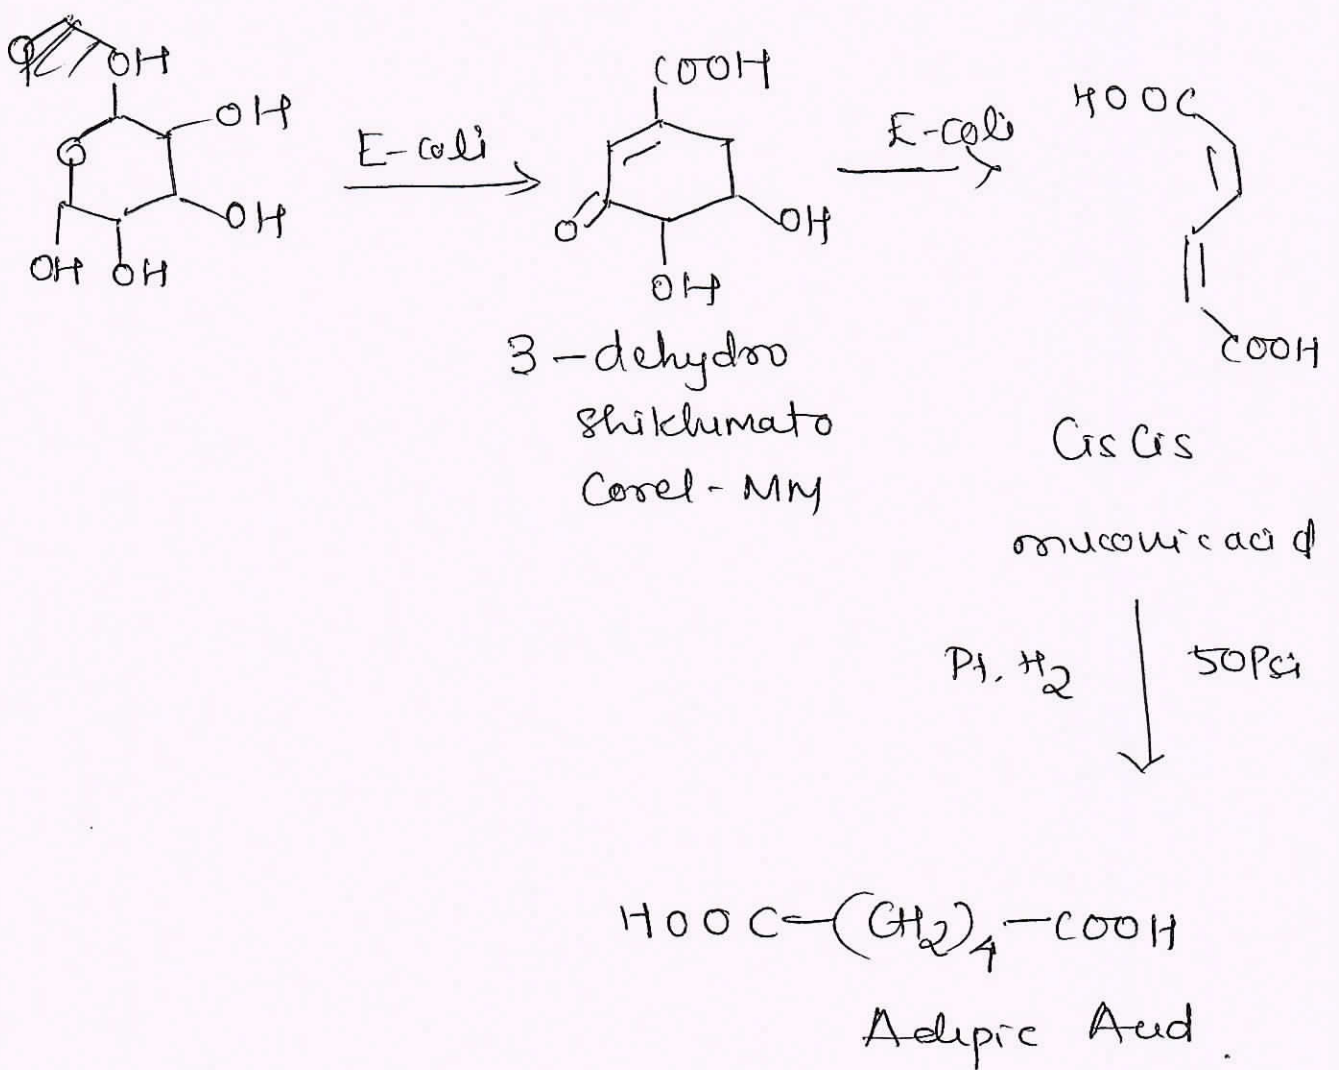 OH
OH
O
OH
OH OH
E-coli
COOH
O
OH
OH
3-dehydro
shikhumato
Corel-MM
E-coli
HOOC
COOH
Cis Cis
muconic acid
Pt, H2
50Psi
HOOC-(CH2)4-COOH
Adipic Acid.